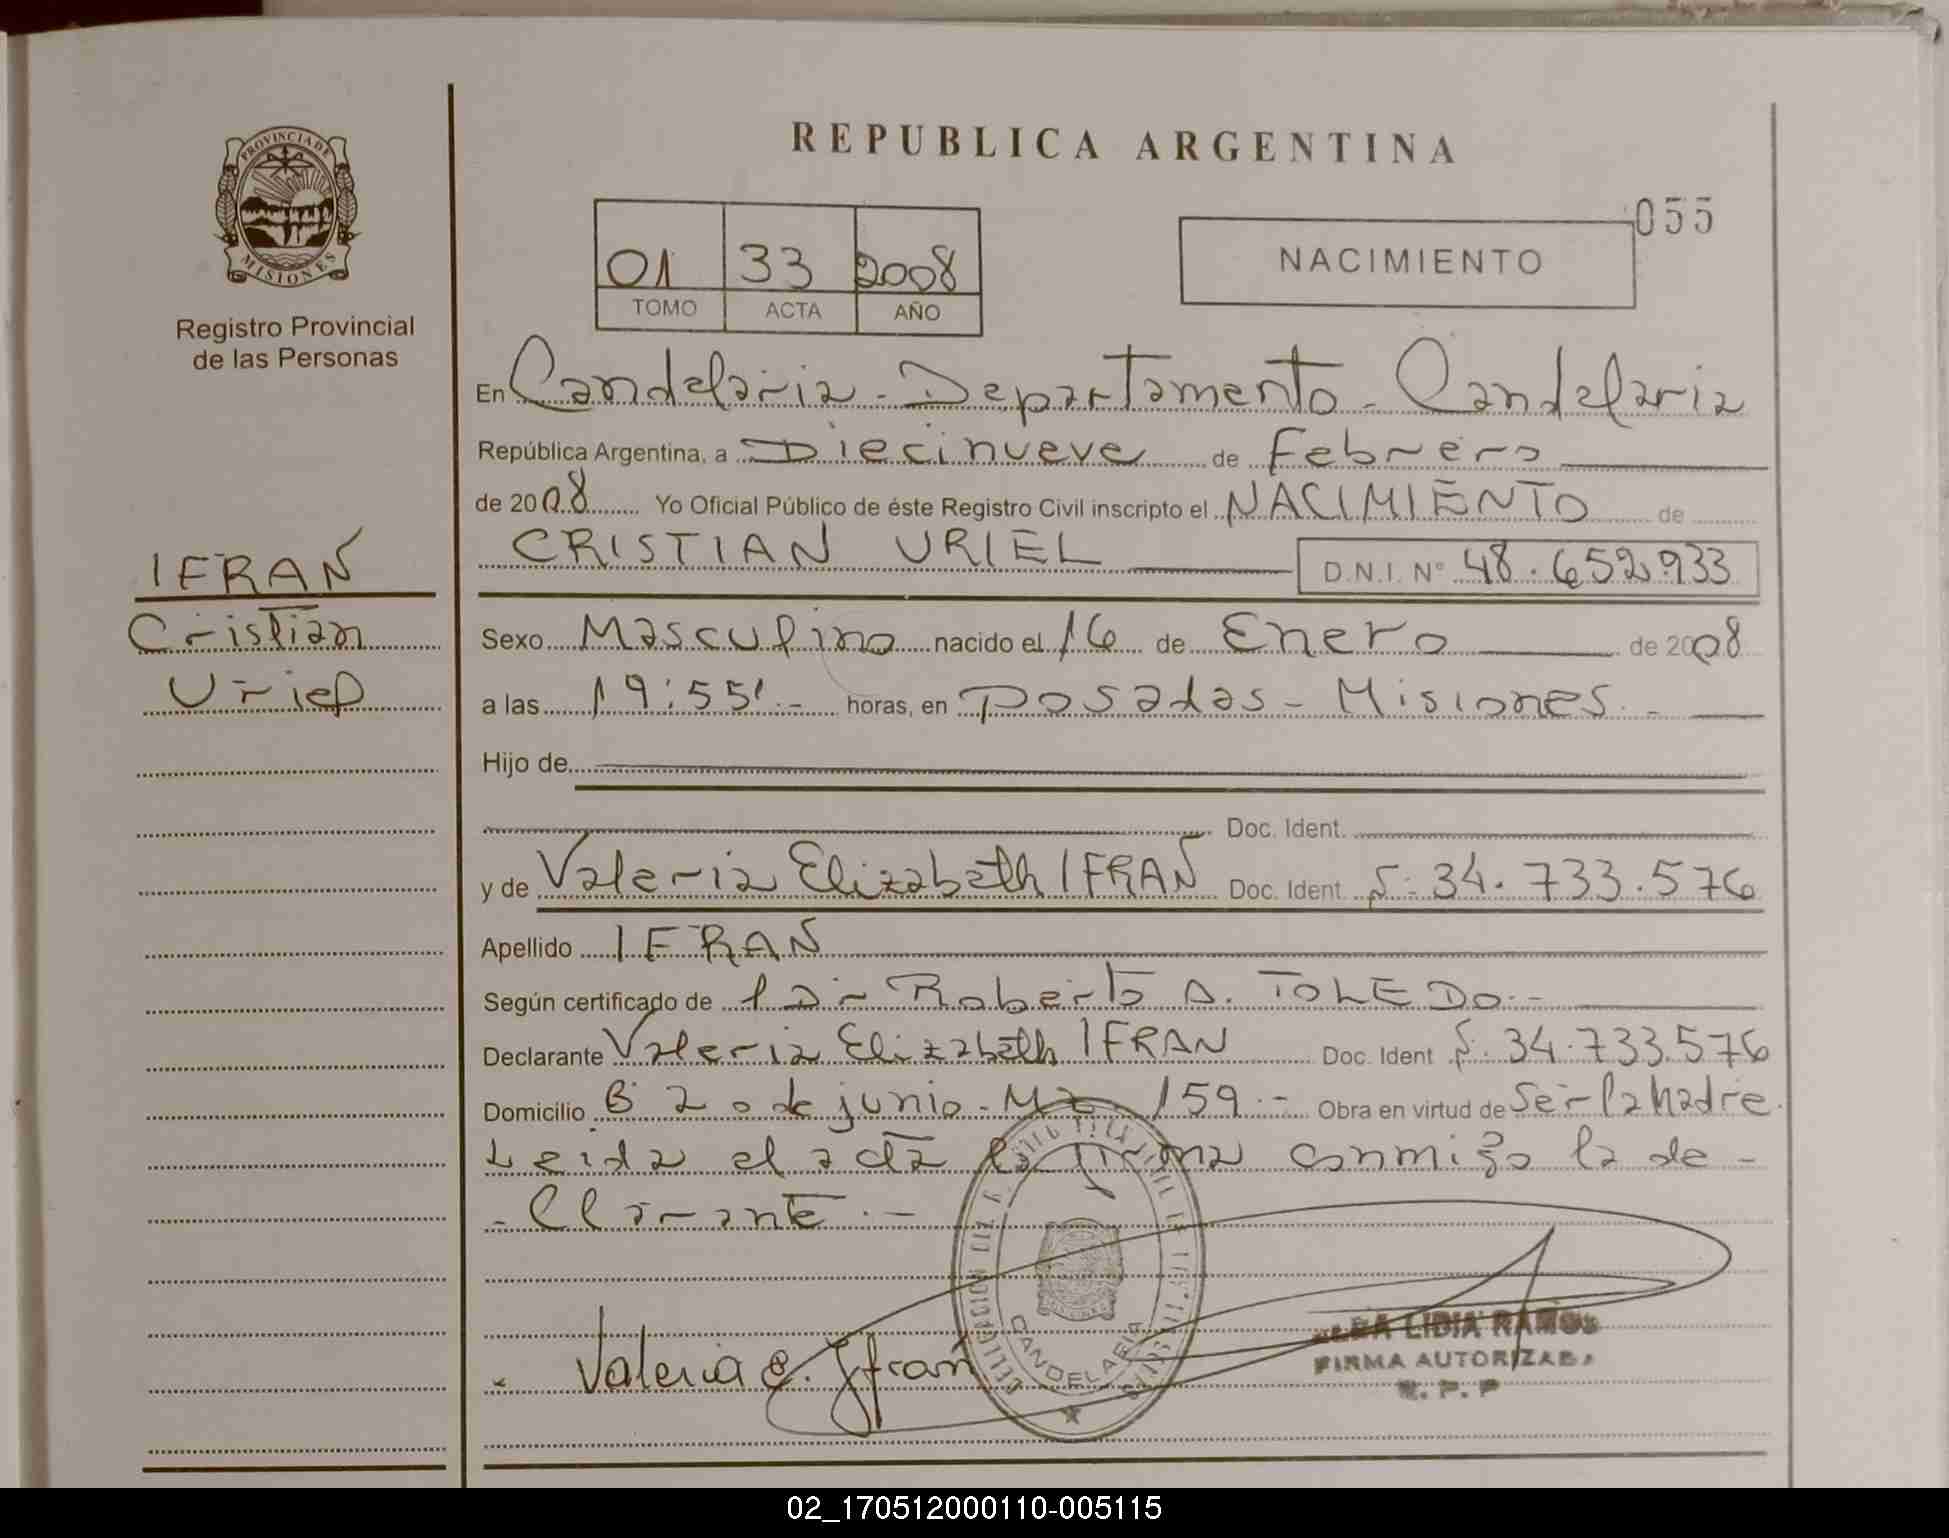 REPUBLICA ARGENTINA
PROVINCIA DE
MISIONES
Registro Provincial
de las Personas
01 33 2008
TOMO ACTA AÑO
NACIMIENTO
055
En Candelaria - Departamento - Candelaria
República Argentina, a Diecinueve de Febrero
de 2008 Yo Oficial Público de éste Registro Civil inscripto el NACIMIENTO de
CRISTIAN URIEL D.N.I. Nº 48.652.933
IFRAN
Cristian
Uriel
Sexo Masculino nacido el 16 de Enero de 2008
a las 19:55'.- horas, en Posadas - Misiones. -
Hijo de
Doc. Ident.
y de Valeria Elizabeth IFRAN Doc. Ident. 34.733.576
Apellido IFRAN
Según certificado de Roberto A. TOLEDO.-
Declarante Valeria Elizabeth IFRAN Doc. Ident 34.733.576
Domicilio B 20 de junio - Mz 159.- Obra en virtud de Ser la Madre.
Leida el acta la firma conmigo la de-
-clarante.-
Valeria E. Ifran
CANDELARIA
LIDIA RAMOS
FIRMA AUTORIZADA
R. P. P
02_170512000110-005115